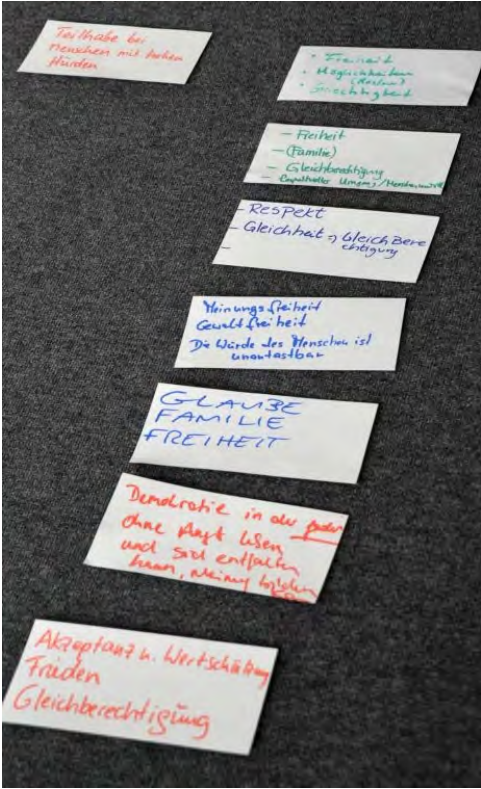 Teilhabe bei
Menschen mit hohen
Hürden
• Freiheit
• Möglichkeiten
• Gerechtigkeit
– Freiheit
– (Familie)
– Gleichberechtigung
– respektvoller Umgang/Menschenwürde
– Respekt
– Gleichheit → Gleichbere
chtigung
–
Meinungsfreiheit
Gewaltfreiheit
Die Würde des Menschen ist
unantastbar
GLAUBE
FAMILIE
FREIHEIT
Demokratie in der jeder
ohne Angst leben
und sich entfalten
kann, Meinung bilden
Akzeptanz u. Wertschätzung
Frieden
Gleichberechtigung